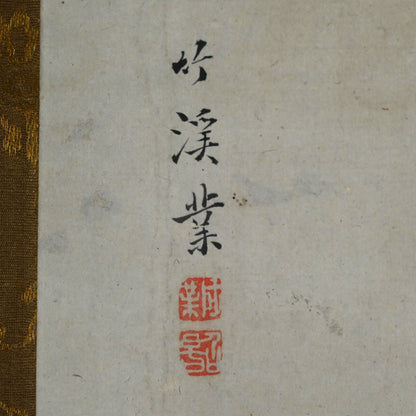 竹渓業